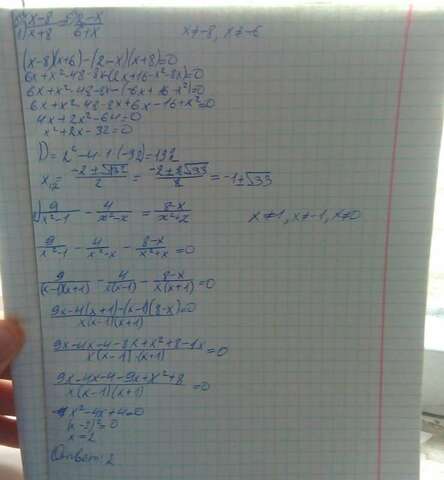 x-8/x+8 = 2-x/6+x    x≠-8, x≠-6
(x-8)(x+6)-(2-x)(x+8)=0
6x+x²-48-8x-(2x+16-x²-8x)=0
6x+x²-48-8x-(-6x+16-x²)=0
6x+x²-48-8x+6x-16+x²=0
4x+2x²-64=0
x²+2x-32=0
D=2²-4·1·(-32)=132
x₁,₂= -2±√132/2 = -2±2√33/2 = -1±√33
9/x²-1 - 4/x²-x = 8-x/x²+x    x≠1, x≠-1, x≠0
9/x²-1 - 4/x²-x - 8-x/x²+x =0
9/(x-1)(x+1) - 4/x(x-1) - 8-x/x(x+1) =0
9x-4(x+1)-(x-1)(8-x)/x(x-1)(x+1) =0
9x-4x-4-8x+x²+8-1x/x(x-1)(x+1) =0
9x-4x-4-9x+x²+8/x(x-1)(x+1) =0
x²-4x+4=0
(x-2)²=0
x=2
Ответ: 2